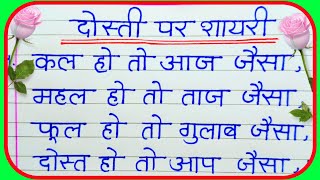 दोस्ती पर शायरी
कल हो तो आज जैसा,
महल हो तो ताज जैसा,
फूल हो तो गुलाब जैसा,
दोस्त हो तो आप जैसा,